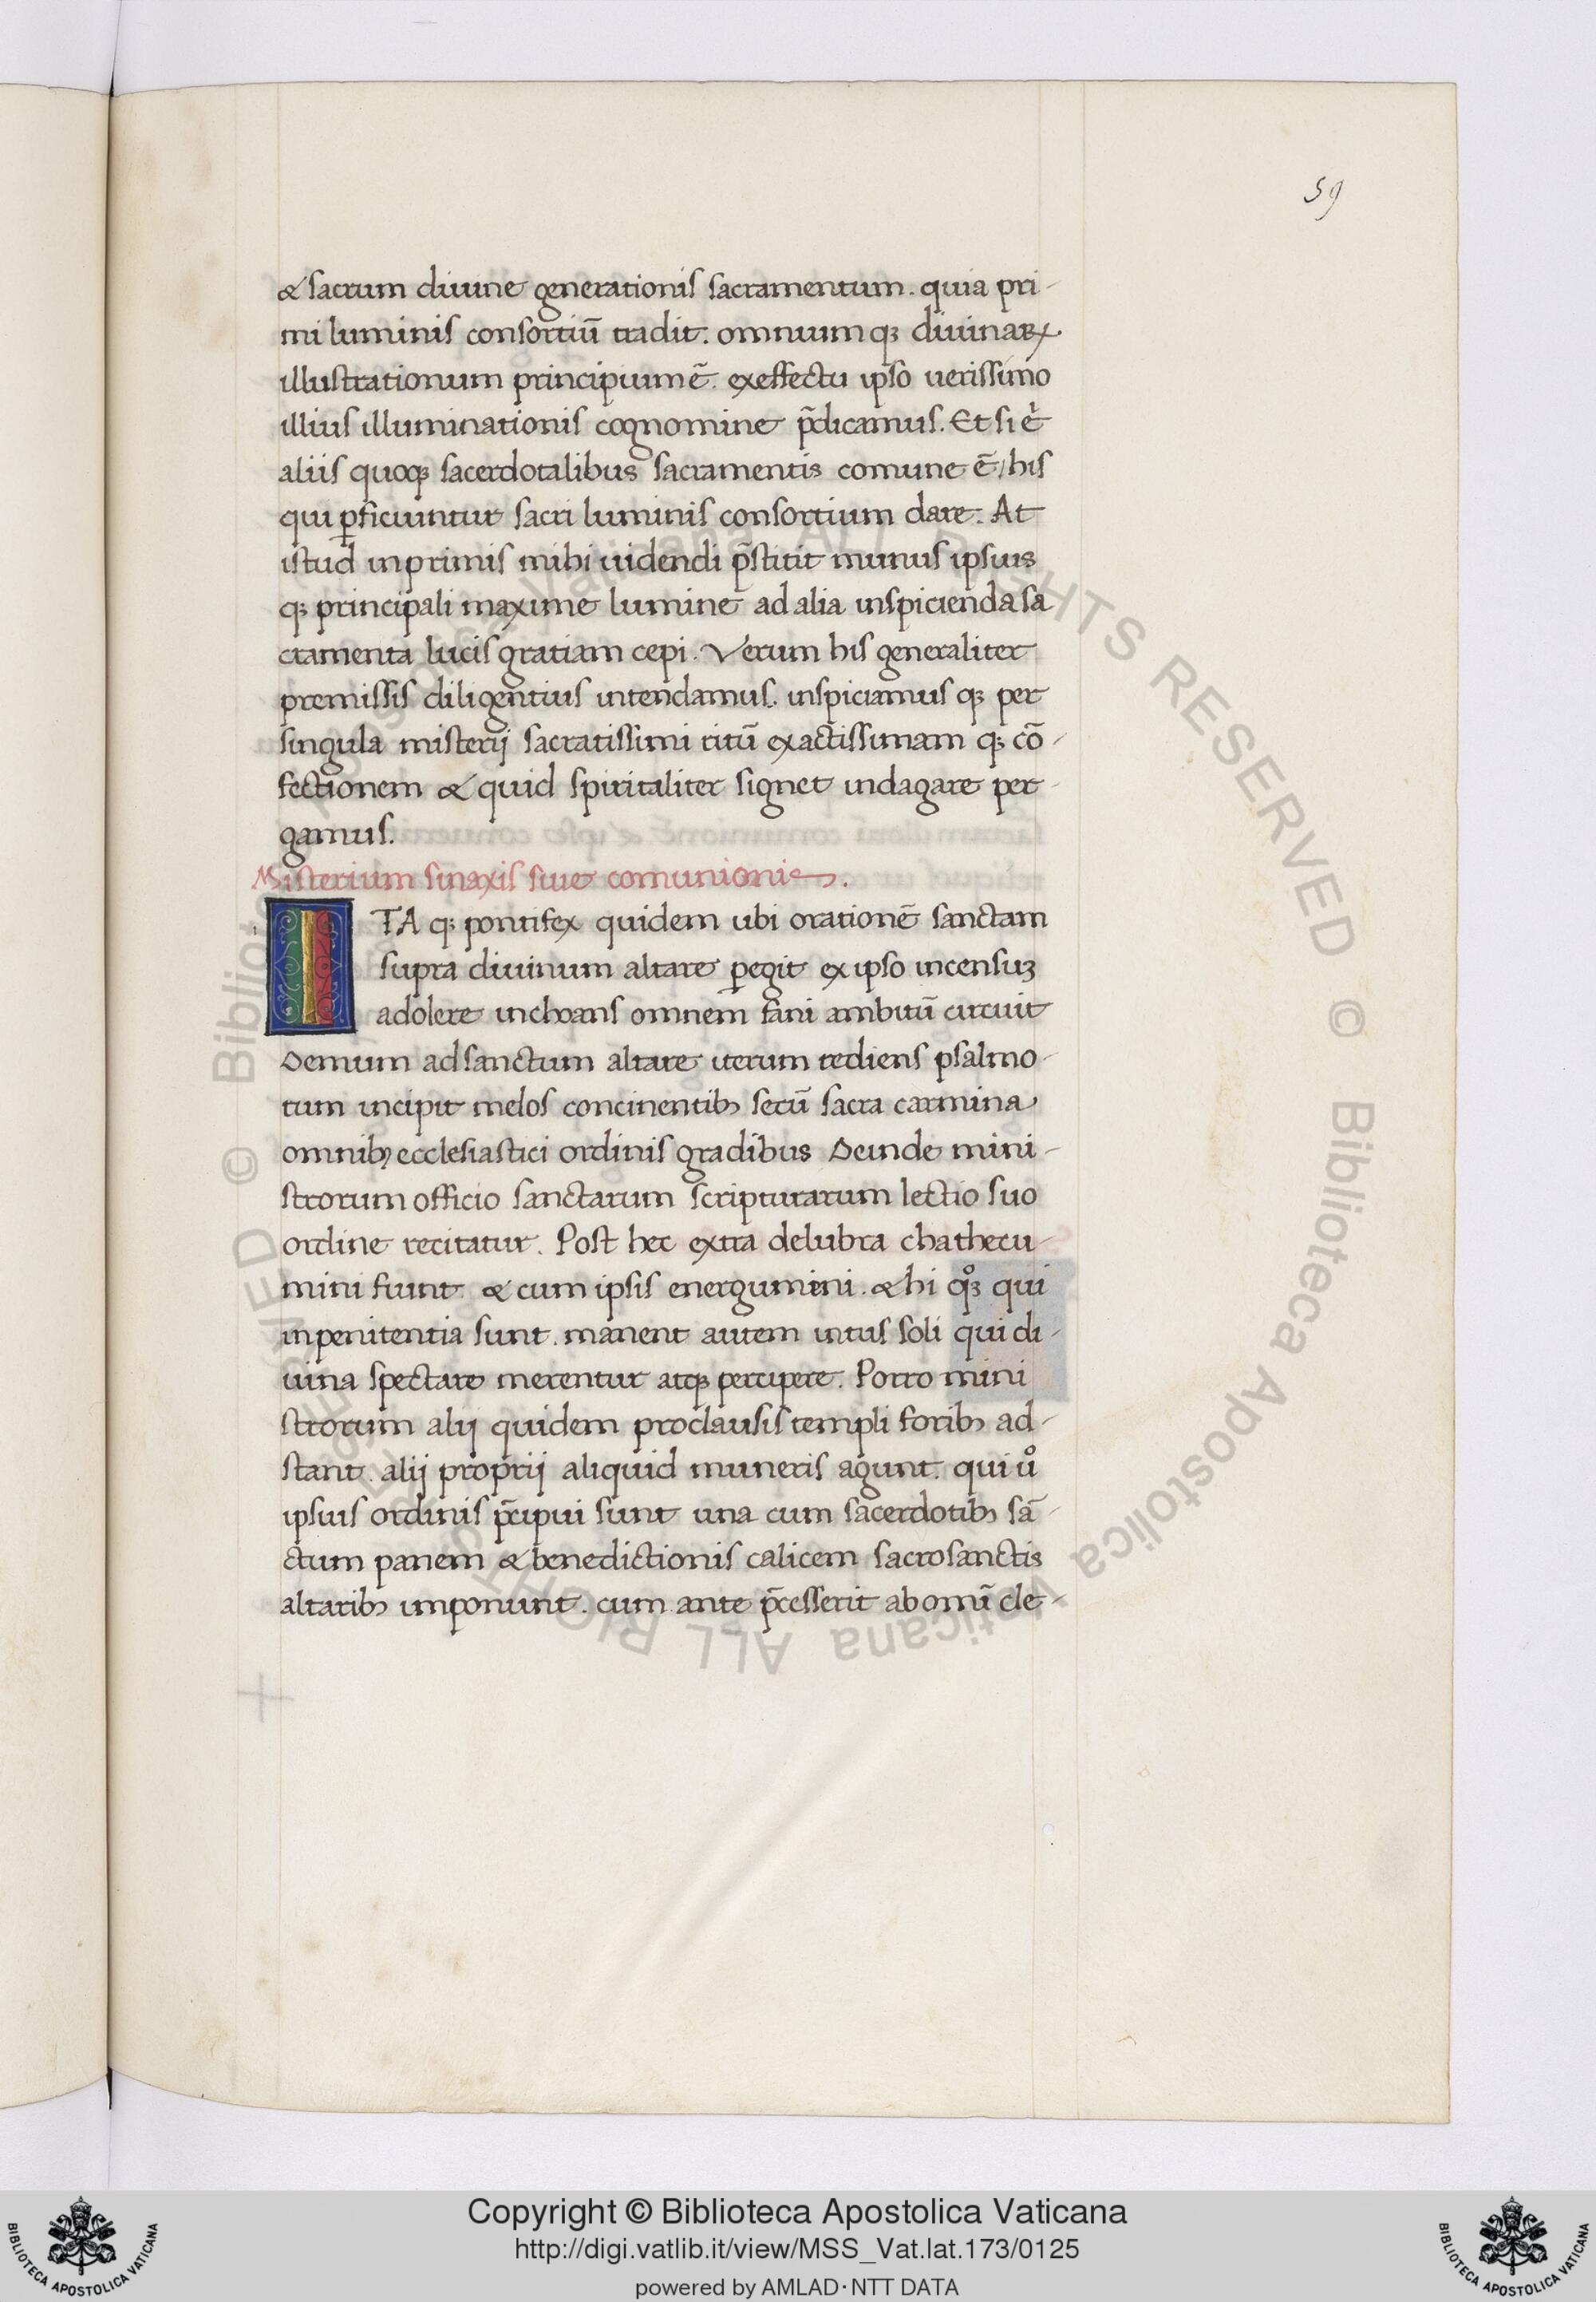 59
& sacrum diuine generationis sacramentum. quia pri-
mi luminis consortiũ tradit. omnium qꝫ diuinaꝝ
illustrationum principium ẽ. ex effectu ipso uerissimo
illius illuminationis cognomine p̃dicamus. Et si e
aliis quoqꝫ sacerdotalibus sacramentis comune ẽ/ his
qui ꝑficiuntur sacri luminis consortium dare. At
istud inprimis mihi uidendi p̃stitit munus ipsuis
qꝫ principali maxime lumine ad alia inspicienda sa
cramenta lucis gratiam cepi. Verum his generaliter
premissis diligentius intendamus. inspiciamus qꝫ per
singula misterij sacratissimi ritũ exactissimam qꝫ cõ-
fectionem & quid spiritaliter signet indagare per-
gamus.
Misterium sinaxis siue comunionis.
ITA qꝫ pontifex quidem ubi orationẽ sanctam
supra diuinum altare ꝑegit ex ipso incensuꝫ
adolere inchoans omnem fani ambitũ circuit
Demum ad sanctum altare iterum rediens psalmo-
rum incipit melos concinentibꝫ secũ sacra carmina
omnibꝫ ecclesiastici ordinis gradibus Deinde mini-
strorum officio sanctarum scripturarum lectio suo
ordine recitatur. Post hec extra delubra chathecu-
mini fiunt & cum ipsis energumini. & hi qͦꝫ qui
inpenitentia sunt. manent autem intus soli qui di-
uina spectare merentur atqꝫ percipere. Porro mini
strorum alij quidem pro clausis templi foribꝫ ad-
stant. alij proprii aliquid muneris agunt. qui uͦ
ipsius ordinis p̃cipui sunt una cum sacerdotibꝫ sã-
ctum panem & benedictionis calicem sacrosanctis
altaribꝫ imponunt. cum ante p̃cesserit ab omĩ cle-
© Biblioteca Apostolica Vaticana ALL RIGHTS RESERVED © Biblioteca Apostolica Vaticana ALL RIGHTS RESERVED
Copyright © Biblioteca Apostolica Vaticana
http://digi.vatlib.it/view/MSS_Vat.lat.173/0125
powered by AMLAD·NTT DATA
BIBLIOTECA APOSTOLICA VATICANA
BIBLIOTECA APOSTOLICA VATICANA